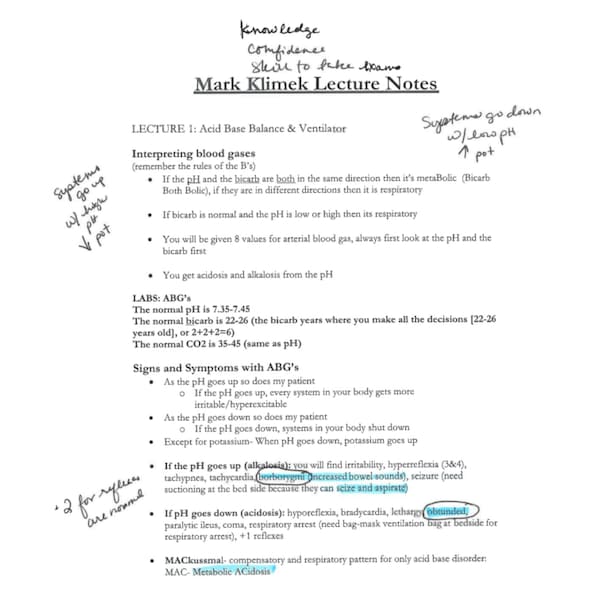 Knowledge
Confidence
Skill to take exams
Mark Klimek Lecture Notes
Systems go down
w/ low pH
↑ pot
LECTURE 1: Acid Base Balance & Ventilator
Interpreting blood gases
(remember the rules of the B's)
Systems
go up
w/ high
pH
↓ pot
• If the pH and the bicarb are both in the same direction then it's metaBolic (Bicarb
Both Bolic), if they are in different directions then it is respiratory
• If bicarb is normal and the pH is low or high then its respiratory
• You will be given 8 values for arterial blood gas, always first look at the pH and the
bicarb first
• You get acidosis and alkalosis from the pH
LABS: ABG's
The normal pH is 7.35-7.45
The normal bicarb is 22-26 (the bicarb years where you make all the decisions [22-26
years old], or 2+2+2=6)
The normal CO2 is 35-45 (same as pH)
Signs and Symptoms with ABG's
• As the pH goes up so does my patient
o If the pH goes up, every system in your body gets more
irritable/hyperexcitable
• As the pH goes down so does my patient
o If the pH goes down, systems in your body shut down
• Except for potassium- When pH goes down, potassium goes up
• If the pH goes up (alkalosis): you will find irritability, hyperreflexia (3&4),
tachypnea, tachycardia, borborygmi (increased bowel sounds), seizure (need
suctioning at the bed side because they can seize and aspirate)
2 for reflexes
are normal
• If pH goes down (acidosis): hyporeflexia, bradycardia, lethargy, obtunded,
paralytic ileus, coma, respiratory arrest (need bag-mask ventilation bag at bedside for
respiratory arrest), +1 reflexes
• MACkussmal- compensatory and respiratory pattern for only acid base disorder:
MAC- Metabolic ACidosis